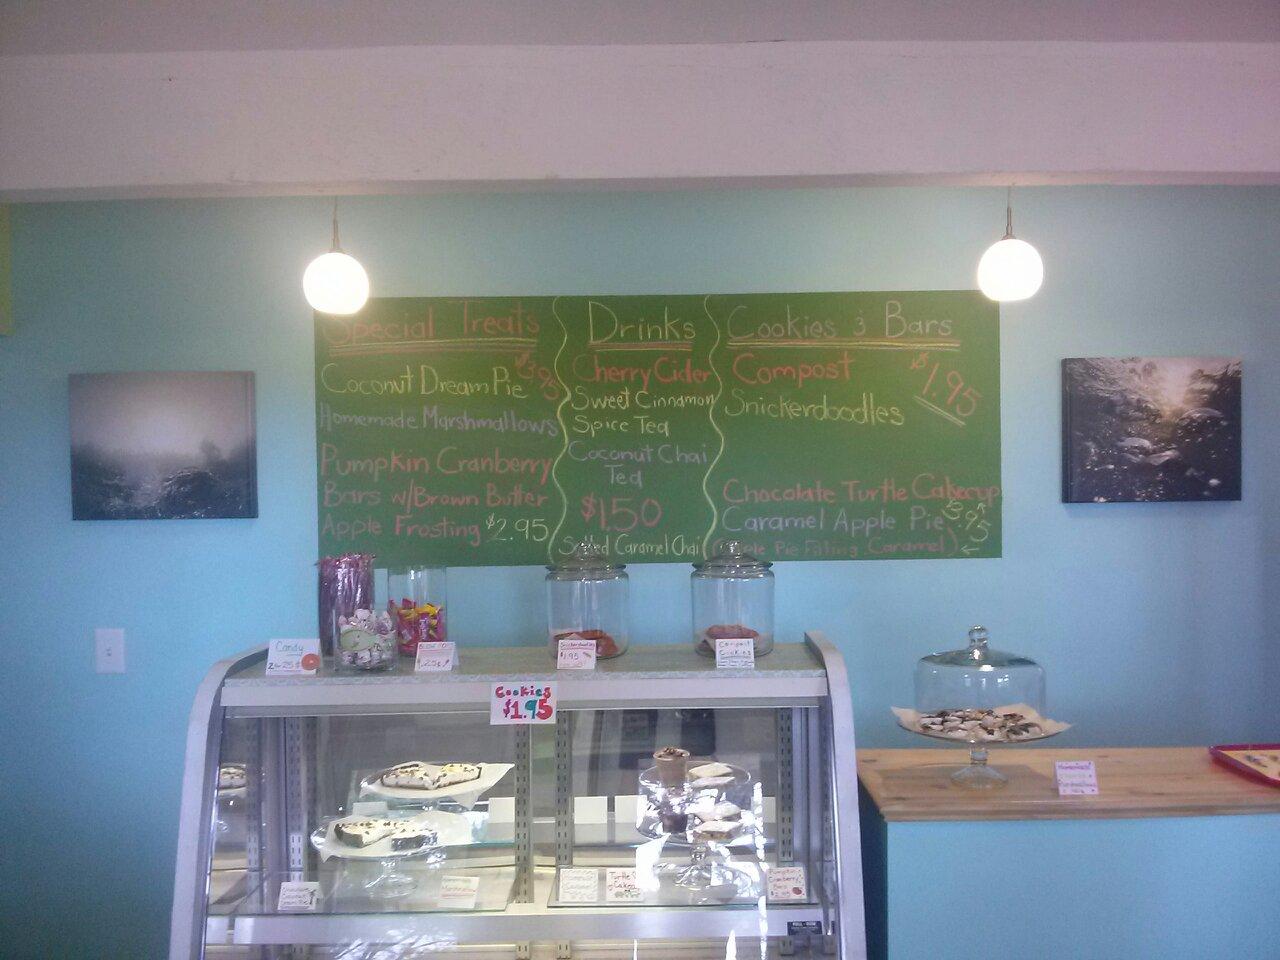 Special Treats
Coconut Dream Pie $3.95
Homemade Marshmallows
Pumpkin Cranberry
Bars w/Brown Butter
Apple Frosting $2.95
Drinks
Cherry Cider
Sweet Cinnamon
Spice Tea
Coconut Chai
Tea
$1.50
Salted Caramel Chai
Cookies & Bars
Compost $1.95
Snickerdoodles
Chocolate Turtle Cakecup
Caramel Apple Pie $3.95
(Apple Pie Filling Caramel)
Candy
2 for 25¢
.25¢
Snickerdoodles
$1.95
Compost
Cookies
Cookies
$1.95
Homemade
Chocolate
Coconut
Dream Pie
Turtle
Cakecup
Pumpkin
Cranberry
Bars
$2.95